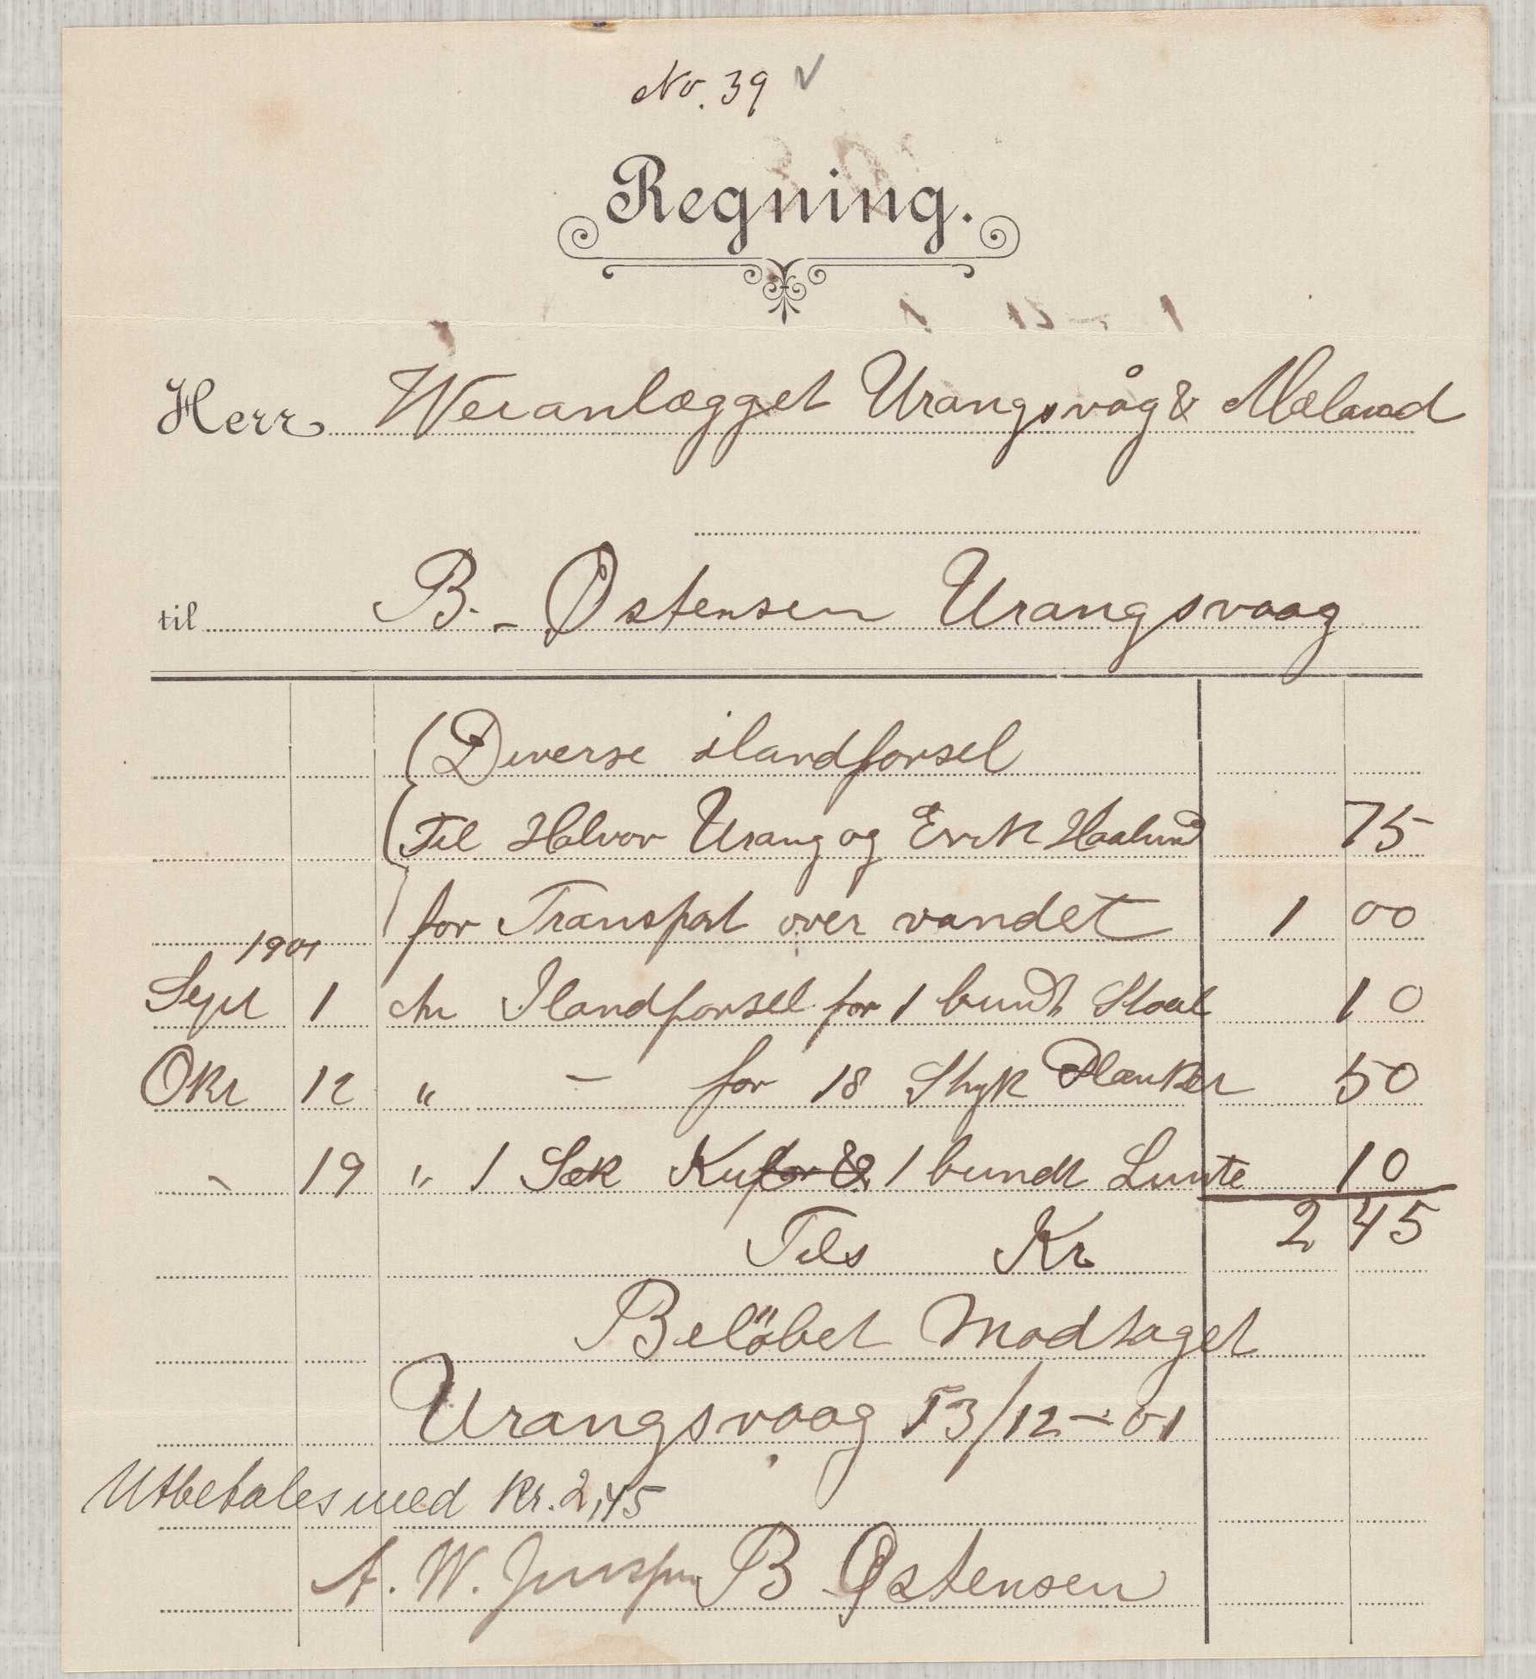 No. 39 ✓
Regning.
Herr Veianlægget Urangsvåg & Mæland
til B. Østensen Urangsvaag
Diverse ilandforsel
til Halvor Urang og Erik Haaland 75
for Transport over vandet 1 00
1901
Sept 1 An Ilandforsel for 1 bundt Staal 10
Okr 12 " — for 18 Styk Planker 50
" 19 " 1 Sæk & 1 bundt Lunte 10
Tils Kr 2 45
Beløbet Modtaget
Urangsvaag 13/12-01
Utbetales med Kr. 2,45
A. W. B Østensen